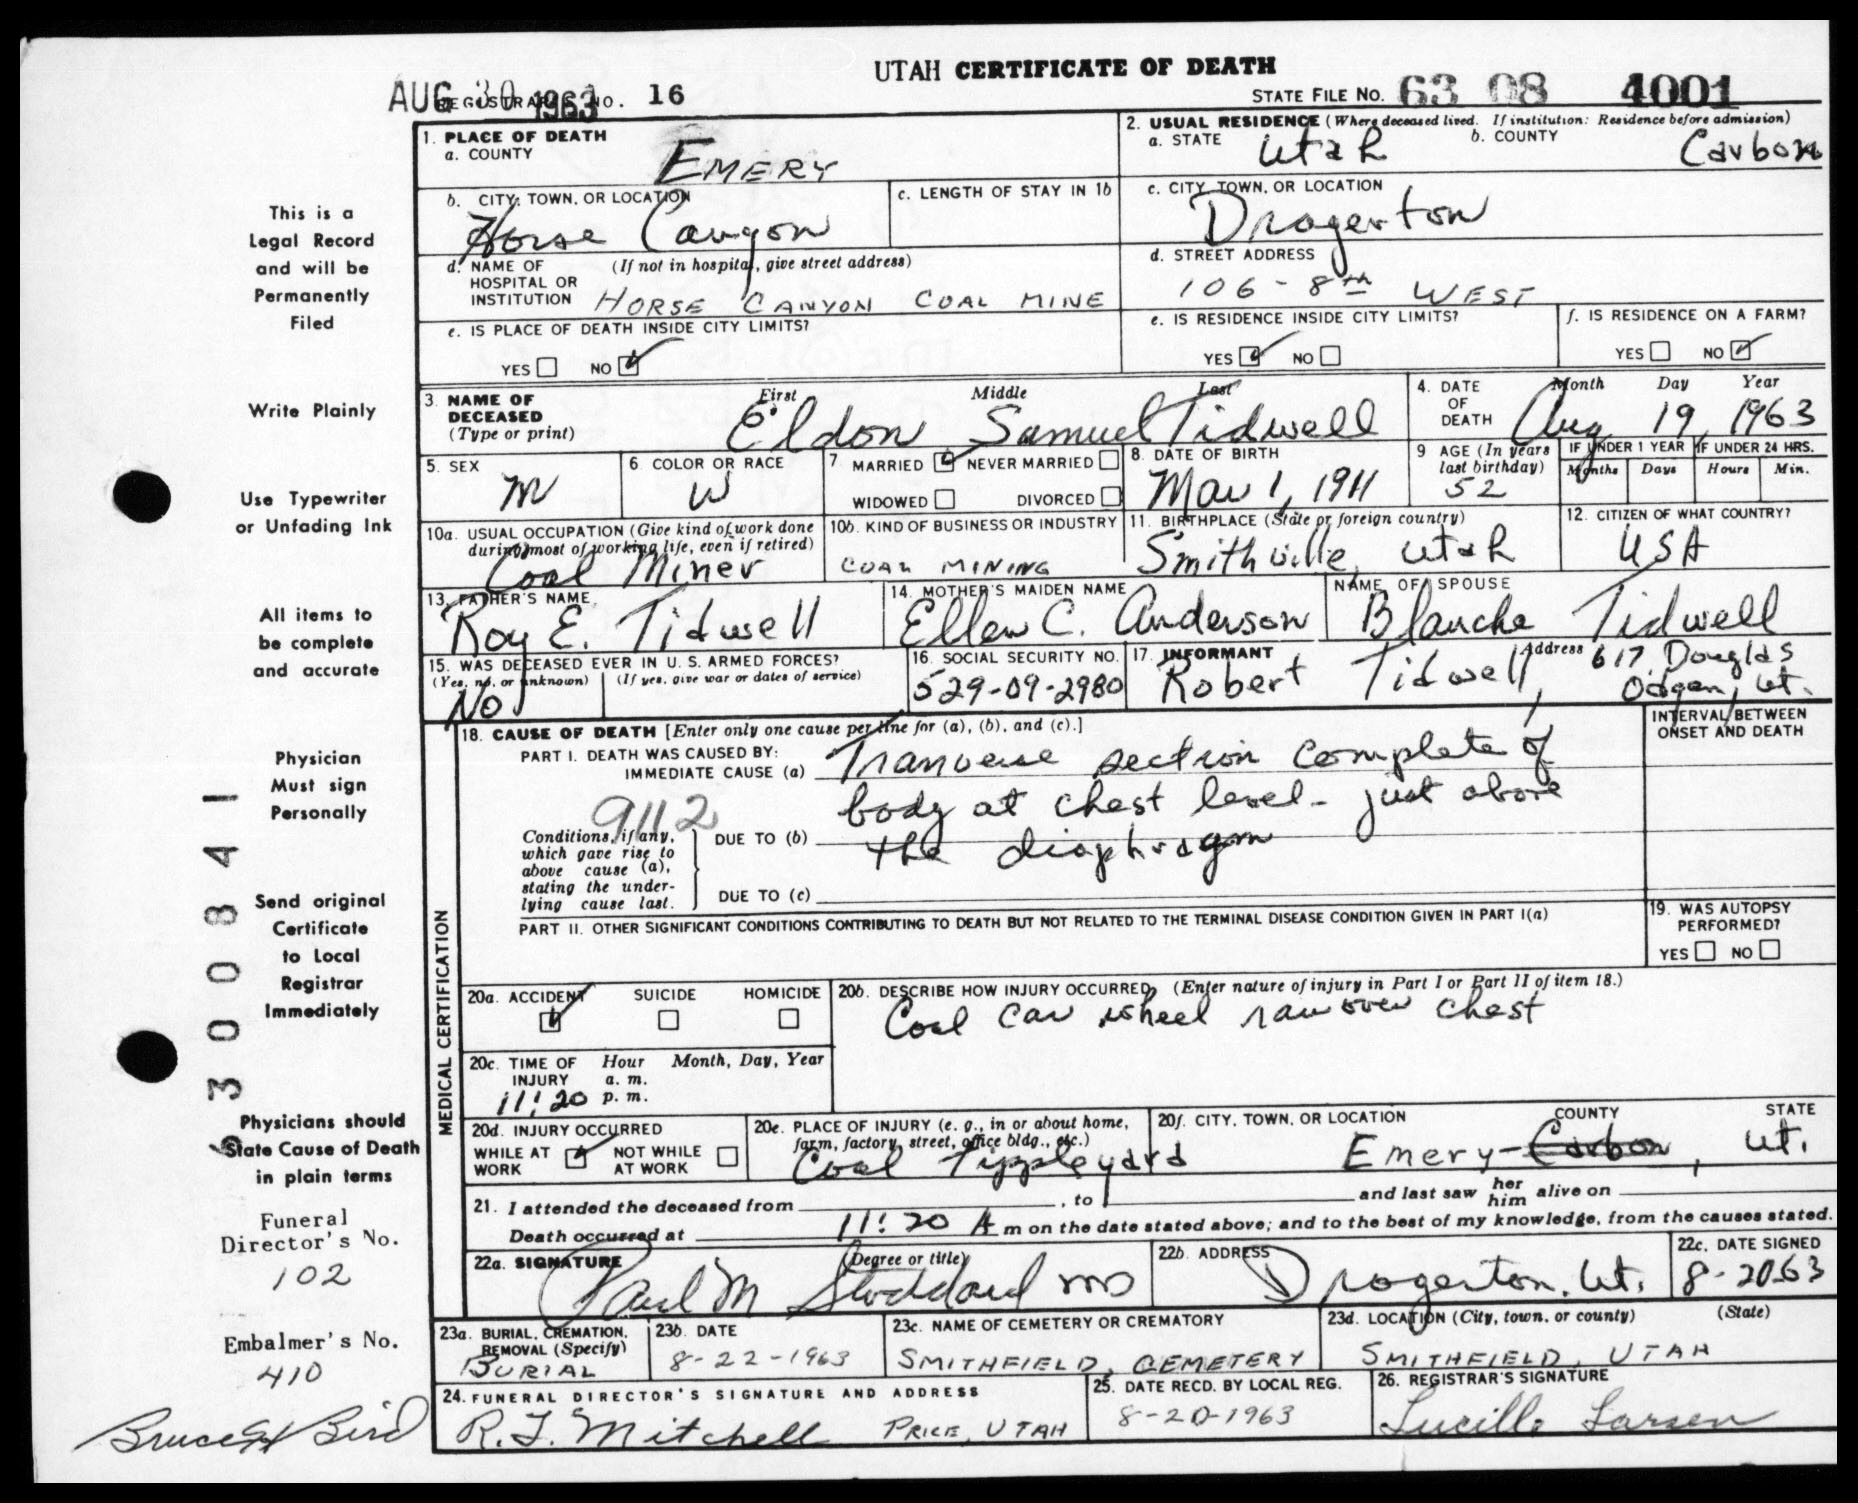 UTAH CERTIFICATE OF DEATH
AUG 30 1963
REGISTRAR'S NO. 16
STATE FILE NO. 63 08 4001
1. PLACE OF DEATH
a. COUNTY
EMERY
2. USUAL RESIDENCE (Where deceased lived. If institution: Residence before admission)
a. STATE Utah b. COUNTY Carbon
b. CITY, TOWN, OR LOCATION
Horse Canyon
c. LENGTH OF STAY IN 1b
c. CITY, TOWN, OR LOCATION
Dragerton
d. NAME OF HOSPITAL OR INSTITUTION (If not in hospital, give street address)
HORSE CANYON COAL MINE
d. STREET ADDRESS
106 - 8th WEST
e. IS PLACE OF DEATH INSIDE CITY LIMITS?
YES NO ✓
e. IS RESIDENCE INSIDE CITY LIMITS?
YES ✓ NO
f. IS RESIDENCE ON A FARM?
YES NO ✓
3. NAME OF DECEASED (Type or print)
First Middle Last
Eldon Samuel Tidwell
4. DATE OF DEATH
Month Day Year
Aug 19, 1963
5. SEX
M
6. COLOR OR RACE
W
7. MARRIED ✓ NEVER MARRIED
WIDOWED DIVORCED
8. DATE OF BIRTH
Mar 1, 1911
9 AGE (In years last birthday)
52
IF UNDER 1 YEAR
Months Days
IF UNDER 24 HRS.
Hours Min.
10a. USUAL OCCUPATION (Give kind of work done during most of working life, even if retired)
Coal Miner
10b. KIND OF BUSINESS OR INDUSTRY
COAL MINING
11. BIRTHPLACE (State or foreign country)
Smithville, Utah
12. CITIZEN OF WHAT COUNTRY?
USA
13. FATHER'S NAME
Roy E. Tidwell
14. MOTHER'S MAIDEN NAME
Ellen C. Anderson
NAME OF SPOUSE
Blanche Tidwell
15. WAS DECEASED EVER IN U. S. ARMED FORCES?
(Yes, no, or unknown) (If yes, give war or dates of service)
No
16. SOCIAL SECURITY NO.
529-09-2980
17. INFORMANT Address
Robert Tidwell, 617 Douglas
Odgen, Ut.
18. CAUSE OF DEATH [Enter only one cause per line for (a), (b), and (c).]
INTERVAL BETWEEN ONSET AND DEATH
PART I. DEATH WAS CAUSED BY:
IMMEDIATE CAUSE (a) Tranverse section complete of
body at chest level - just above
9112
Conditions, if any, which gave rise to above cause (a), stating the underlying cause last.
DUE TO (b) the diaphragm
DUE TO (c)
PART II. OTHER SIGNIFICANT CONDITIONS CONTRIBUTING TO DEATH BUT NOT RELATED TO THE TERMINAL DISEASE CONDITION GIVEN IN PART I(a)
19. WAS AUTOPSY PERFORMED?
YES NO
MEDICAL CERTIFICATION
20a. ACCIDENT ✓ SUICIDE HOMICIDE
20b. DESCRIBE HOW INJURY OCCURRED. (Enter nature of injury in Part I or Part II of item 18.)
Coal car wheel ran over chest
20c. TIME OF INJURY Hour Month, Day, Year
a. m.
11:20 p. m.
20d. INJURY OCCURRED
WHILE AT WORK ✓ NOT WHILE AT WORK
20e. PLACE OF INJURY (e. g., in or about home, farm, factory, street, office bldg., etc.)
Coal Tippleyard
20f. CITY, TOWN, OR LOCATION COUNTY STATE
Emery - Carbon, Ut.
21. I attended the deceased from , to and last saw her him alive on
Death occurred at 11:20 A m on the date stated above; and to the best of my knowledge, from the causes stated.
22a. SIGNATURE (Degree or title)
Paul M Stoddard MD
22b. ADDRESS
Dragerton, Ut.
22c. DATE SIGNED
8-20-63
23a. BURIAL, CREMATION, REMOVAL (Specify)
BURIAL
23b. DATE
8-22-1963
23c. NAME OF CEMETERY OR CREMATORY
SMITHFIELD, CEMETERY
23d. LOCATION (City, town, or county) (State)
SMITHFIELD, UTAH
24. FUNERAL DIRECTOR'S SIGNATURE AND ADDRESS
R. J. Mitchell PRICE, UTAH
25. DATE RECD. BY LOCAL REG.
8-20-1963
26. REGISTRAR'S SIGNATURE
Lucille Larsen
This is a
Legal Record
and will be
Permanently
Filed
Write Plainly
Use Typewriter
or Unfading Ink
All items to
be complete
and accurate
Physician
Must sign
Personally
Send original
Certificate
to Local
Registrar
Immediately
Physicians should
State Cause of Death
in plain terms
Funeral
Director's No.
102
Embalmer's No.
410
Bruce Bird